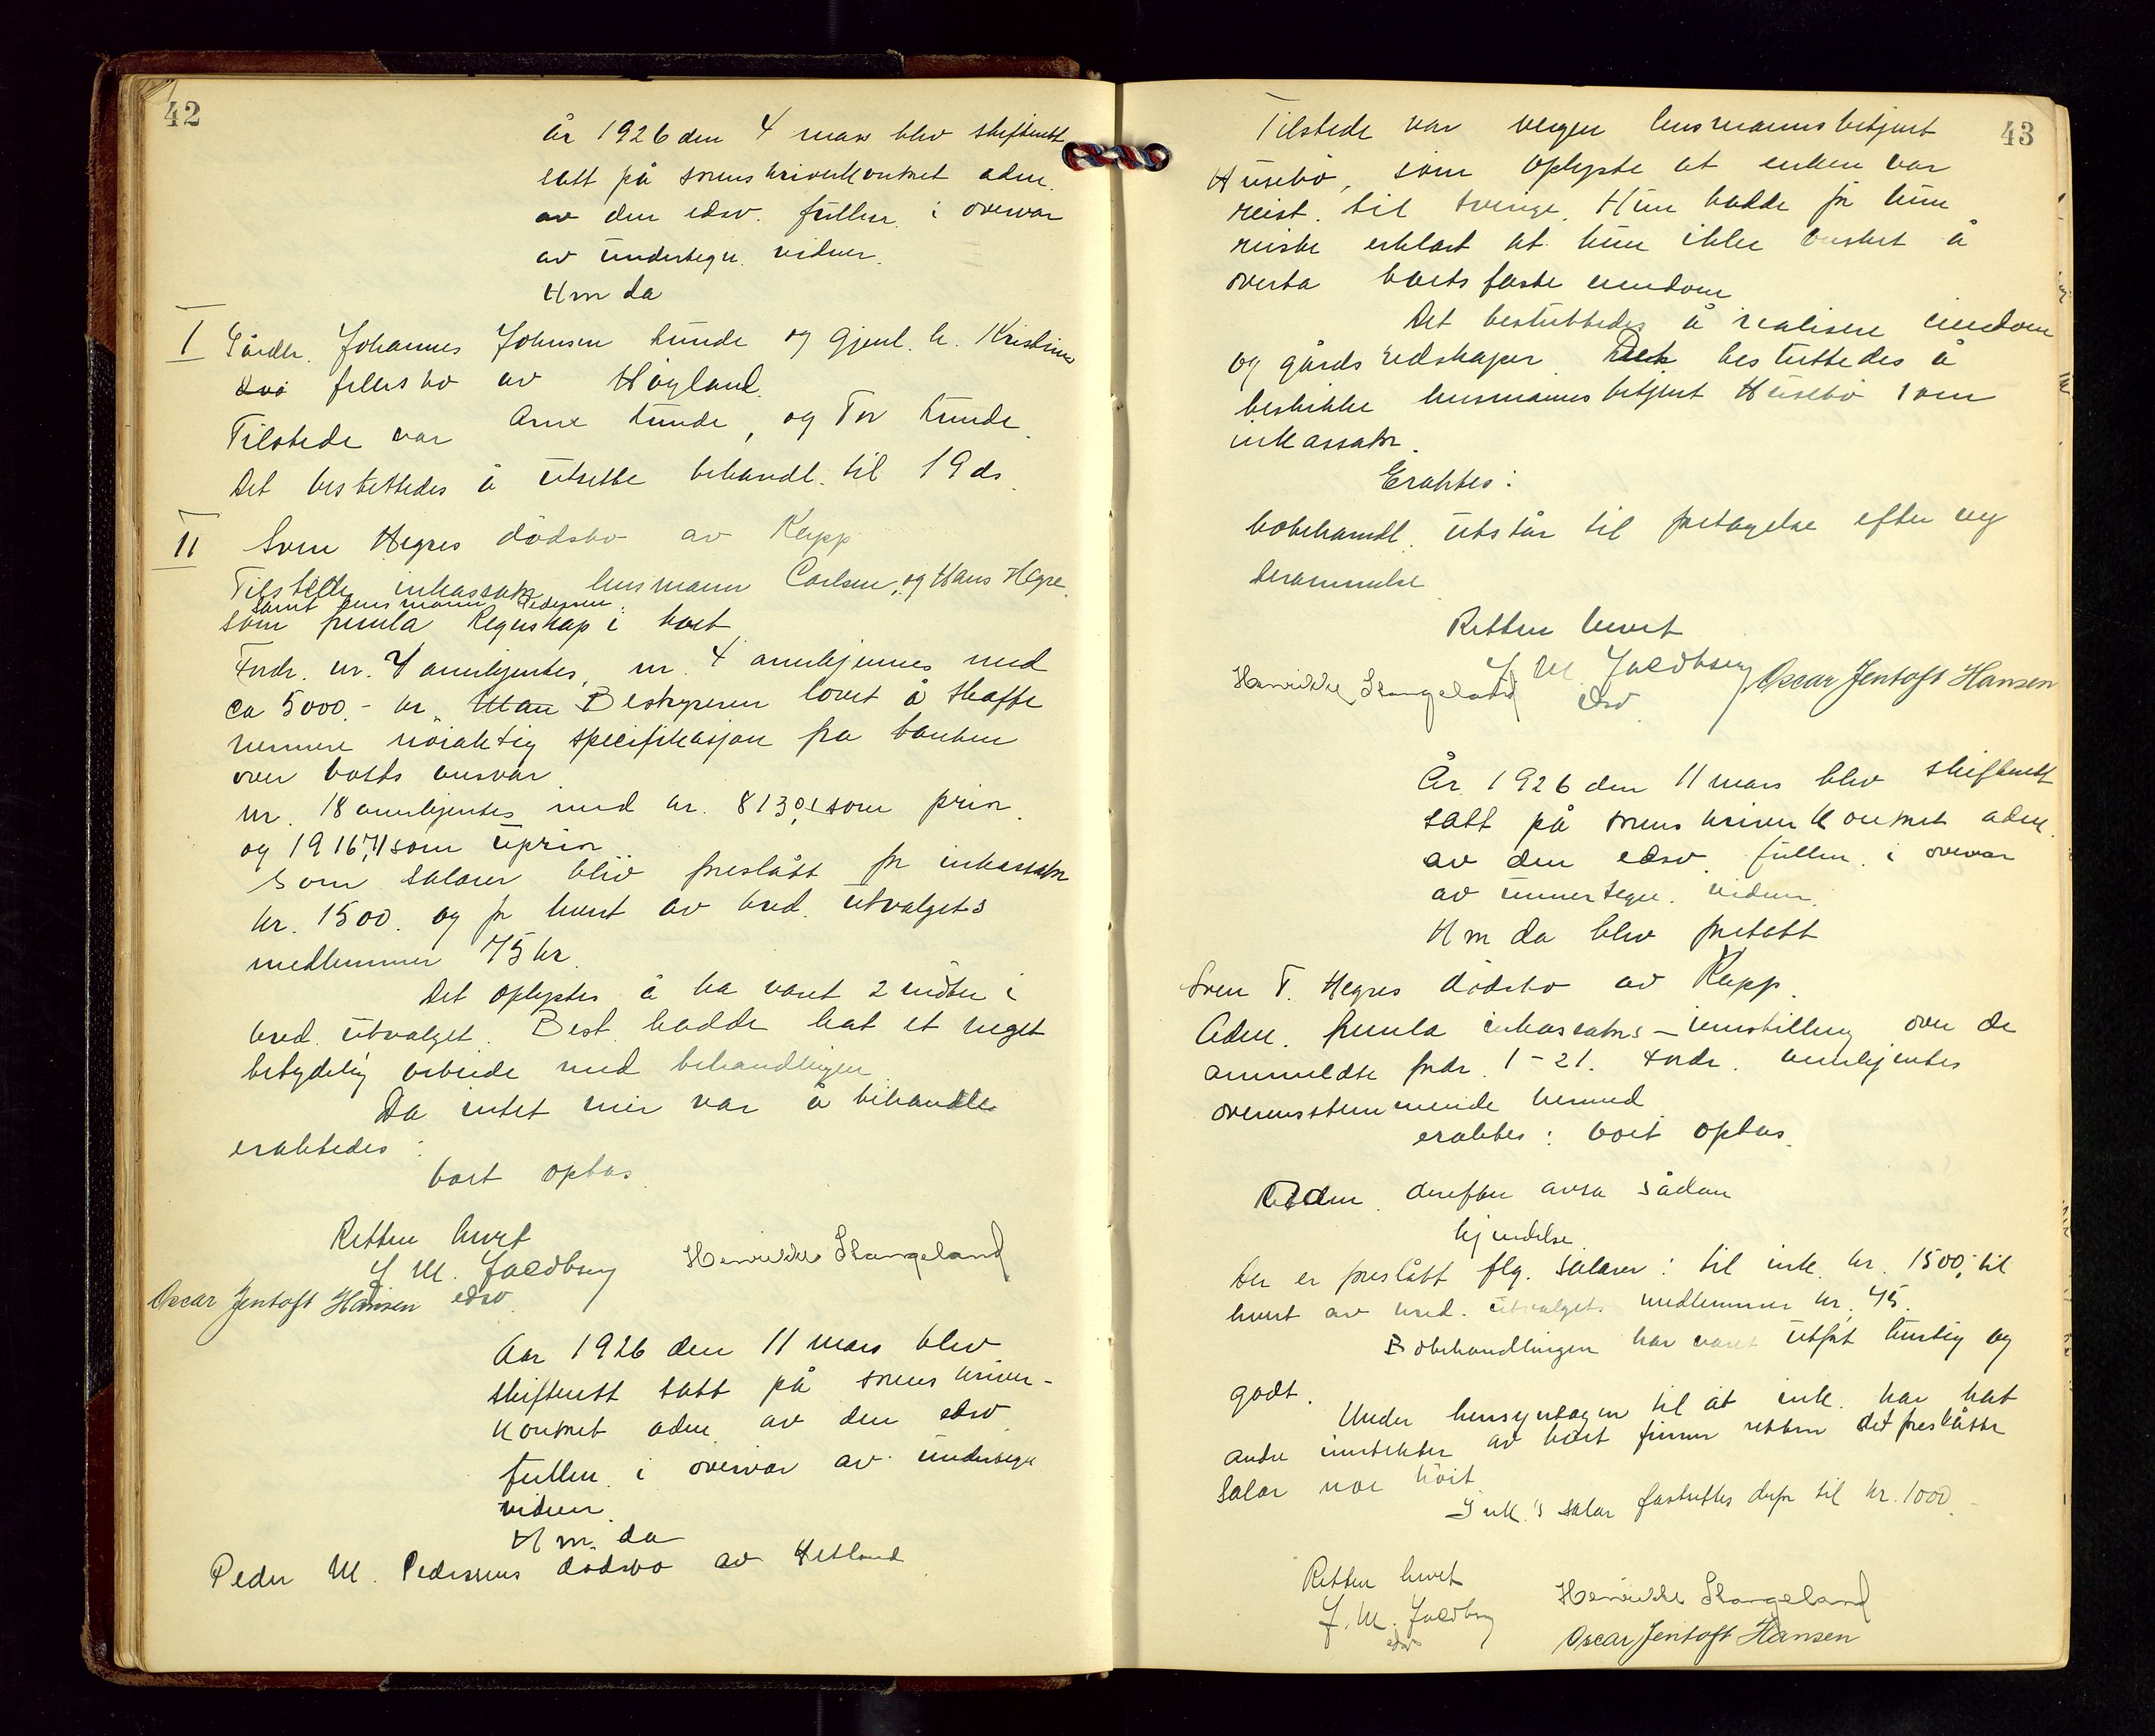 42
År 1926 den 4 mars blev skifterett
satt på sorenskriverkontoret adm.
av den edsv. fullm. i overvær
av undertegn. vidner.
Hvor da
I Gårdbr. Johannes Johnsen Lunde og gjenl. h. Kristine
fellesbo av Høyland.
Tilstede var Arne Lunde, og Tor Lunde.
Det besluttedes å utsette behandl. til 19 ds.
II Sven Hegres dødsbo av Kepp
Tilstede inkassator lensmann Carlsen, og Hans Hegre.
samt lensmann Pedersen.
som fremla Regnskap i boet
Fordr. nr. 7 anerkjentes, nr. 4 anerkjennes med
ca 5000.- kr. Man Bestyreren lovet å skaffe
nermere nöiaktig spesifikasjon fra banken
over boets ansvar
nr. 18 anerkjentes med kr. 813,01 som prior.
og 1916,71 som uprior
Som salarer blev foreslått for inkassator
kr. 1500. og for hvert av kred. utvalgets
medlemmer 75 kr.
Det oplystes å ha vært 2 möter i
kred. utvalget. Best. hadde hat et meget
betydelig arbeide med behandlingen
Da intet mer var å behandle
eraktedes:
boet optas
Retten hevet
J. M. Jacobsen Henrikke Stangeland
Oscar Jentoft Hansen edsv
Aar 1926 den 11 mars blev
skifterett satt på sorenskriver-
kontoret adm. av den edsv
fullm. i overvær av undertegn
vidner.
Hvor da
Peder M. Pedersens dödsbo av Hetland
43
Tilstede var vergen lensmannsbetjent
Husebö, som oplyste at enken var
reist til Sverige. Hun hadde för hun
reiste erklært at hun ikke önsket å
overta boets faste eiendom
Det besluttedes å realisere eiendom
og gårdsredskaper. Det besluttedes å
beskikke lensmannsbetjent Husebö som
inkassator.
Eraktes:
bobehandl. utstår til foretagelse efter ny
berammelse
Retten hevet
Henrikke Stangeland J. M. Jacobsen Oscar Jentoft Hansen
edsv
År 1926 den 11 mars blev skifterett
satt på sorenskriverkontoret adm.
av den edsv. fullm. i overvær
av unnertegn. vidner.
Hvor da blev foretatt
Sven T. Hegres dödsbo av Kepp.
Adm. fremla inkassators innstilling over de
anmeldte fordr. 1-21. Fordr. anerkjentes
overensstemmende hermed
eraktes: boet optas.
Retten derefter avsa sådan
kjendelse
Der er foreslått flg. salarer: til ink. kr. 1500,- til
hvert av kred. utvalgets medlemmer kr. 75.
Bobehandlingen har været utfört hurtig og
godt.
Under hensyntagen til at ink. har hat
andre inntekter av boet finner retten det foreslåtte
salar noe höit
Ink.'s salar fastsettes derfor til kr. 1000.-
Retten hevet
J. M. Jacobsen
edsv
Henrikke Stangeland
Oscar Jentoft Hansen